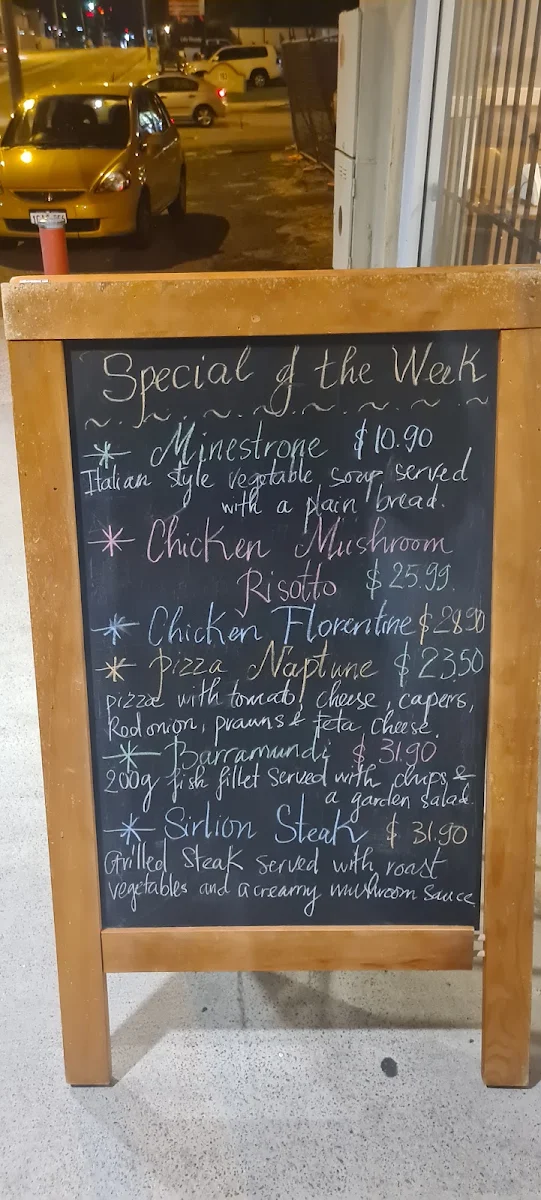 Special of the Week
* Minestrone $10.90
Italian style vegetable soup served
with a plain bread.
* Chicken Mushroom
Risotto $25.99
* Chicken Florentine $28.90
* Pizza Naptune $23.50
pizza with tomato, cheese, capers,
Red onion, prawns & feta cheese.
* Barramundi $31.90
200g fish fillet served with chips &
a garden salad.
* Sirlion Steak $31.90
Grilled Steak served with roast
vegetables and a creamy mushroom sauce